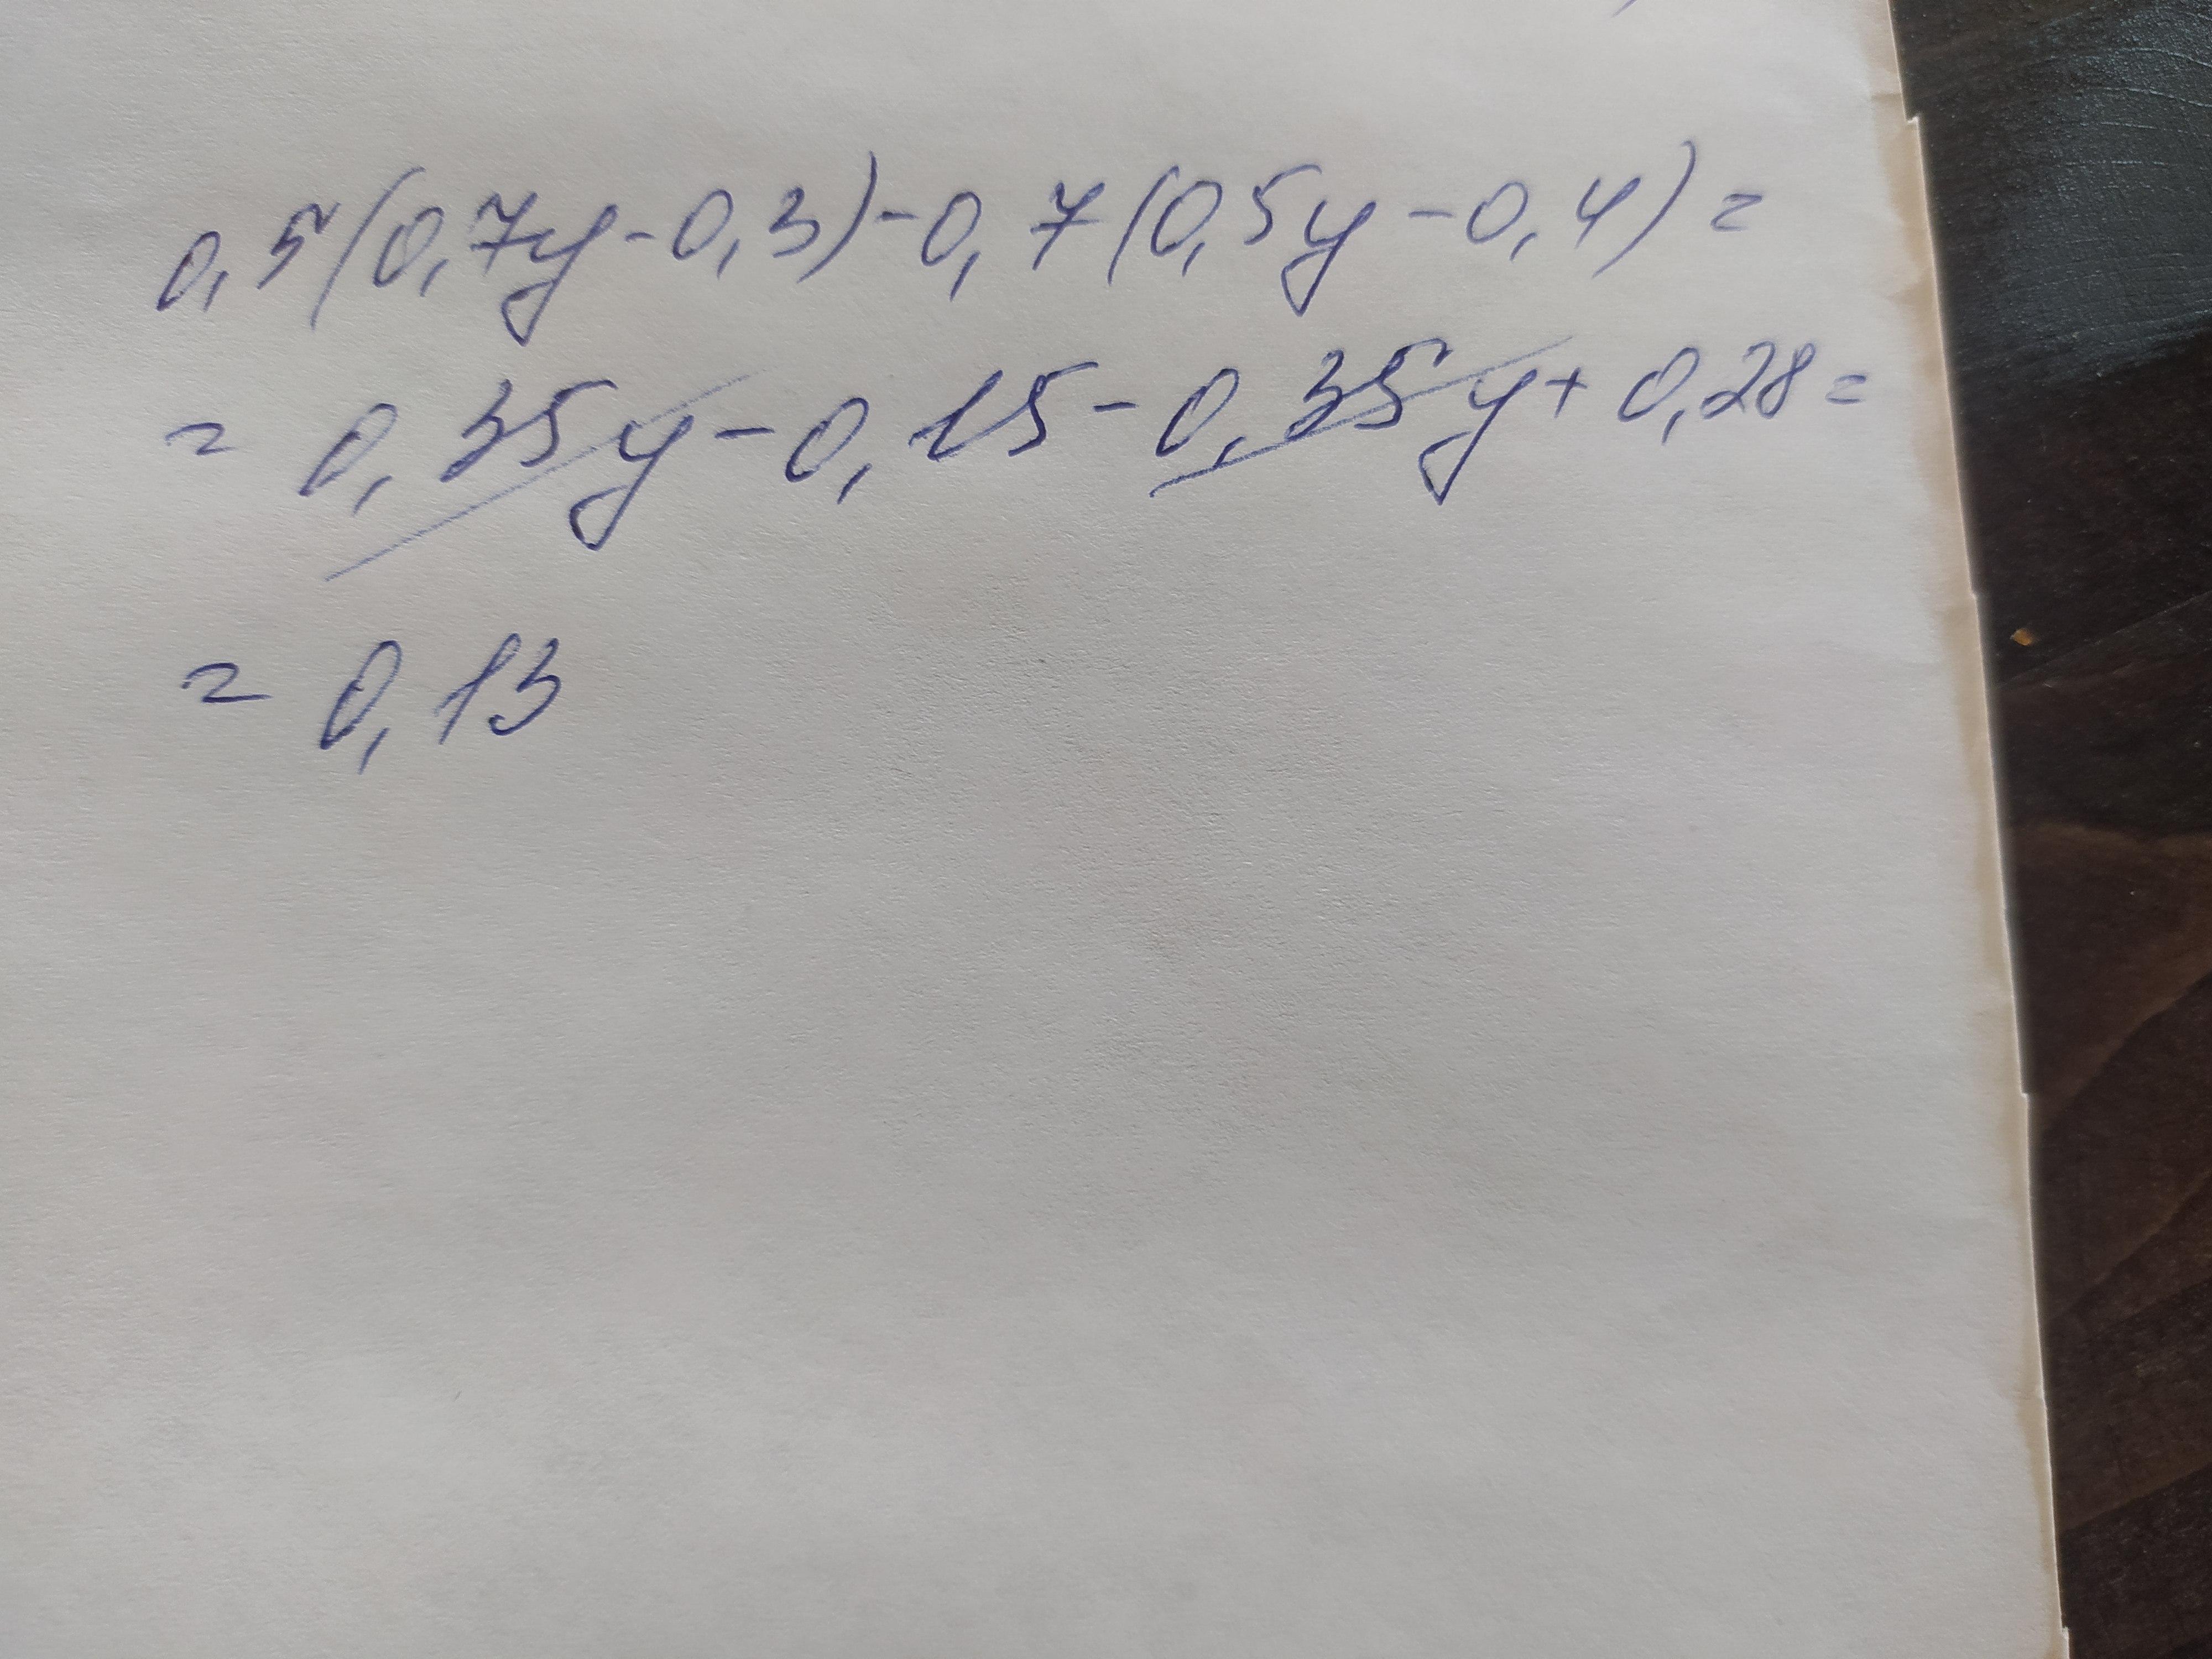 0,5(0,7y-0,3)-0,7(0,5y-0,4)=
= 0,35y-0,15-0,35y+0,28=
= 0,13